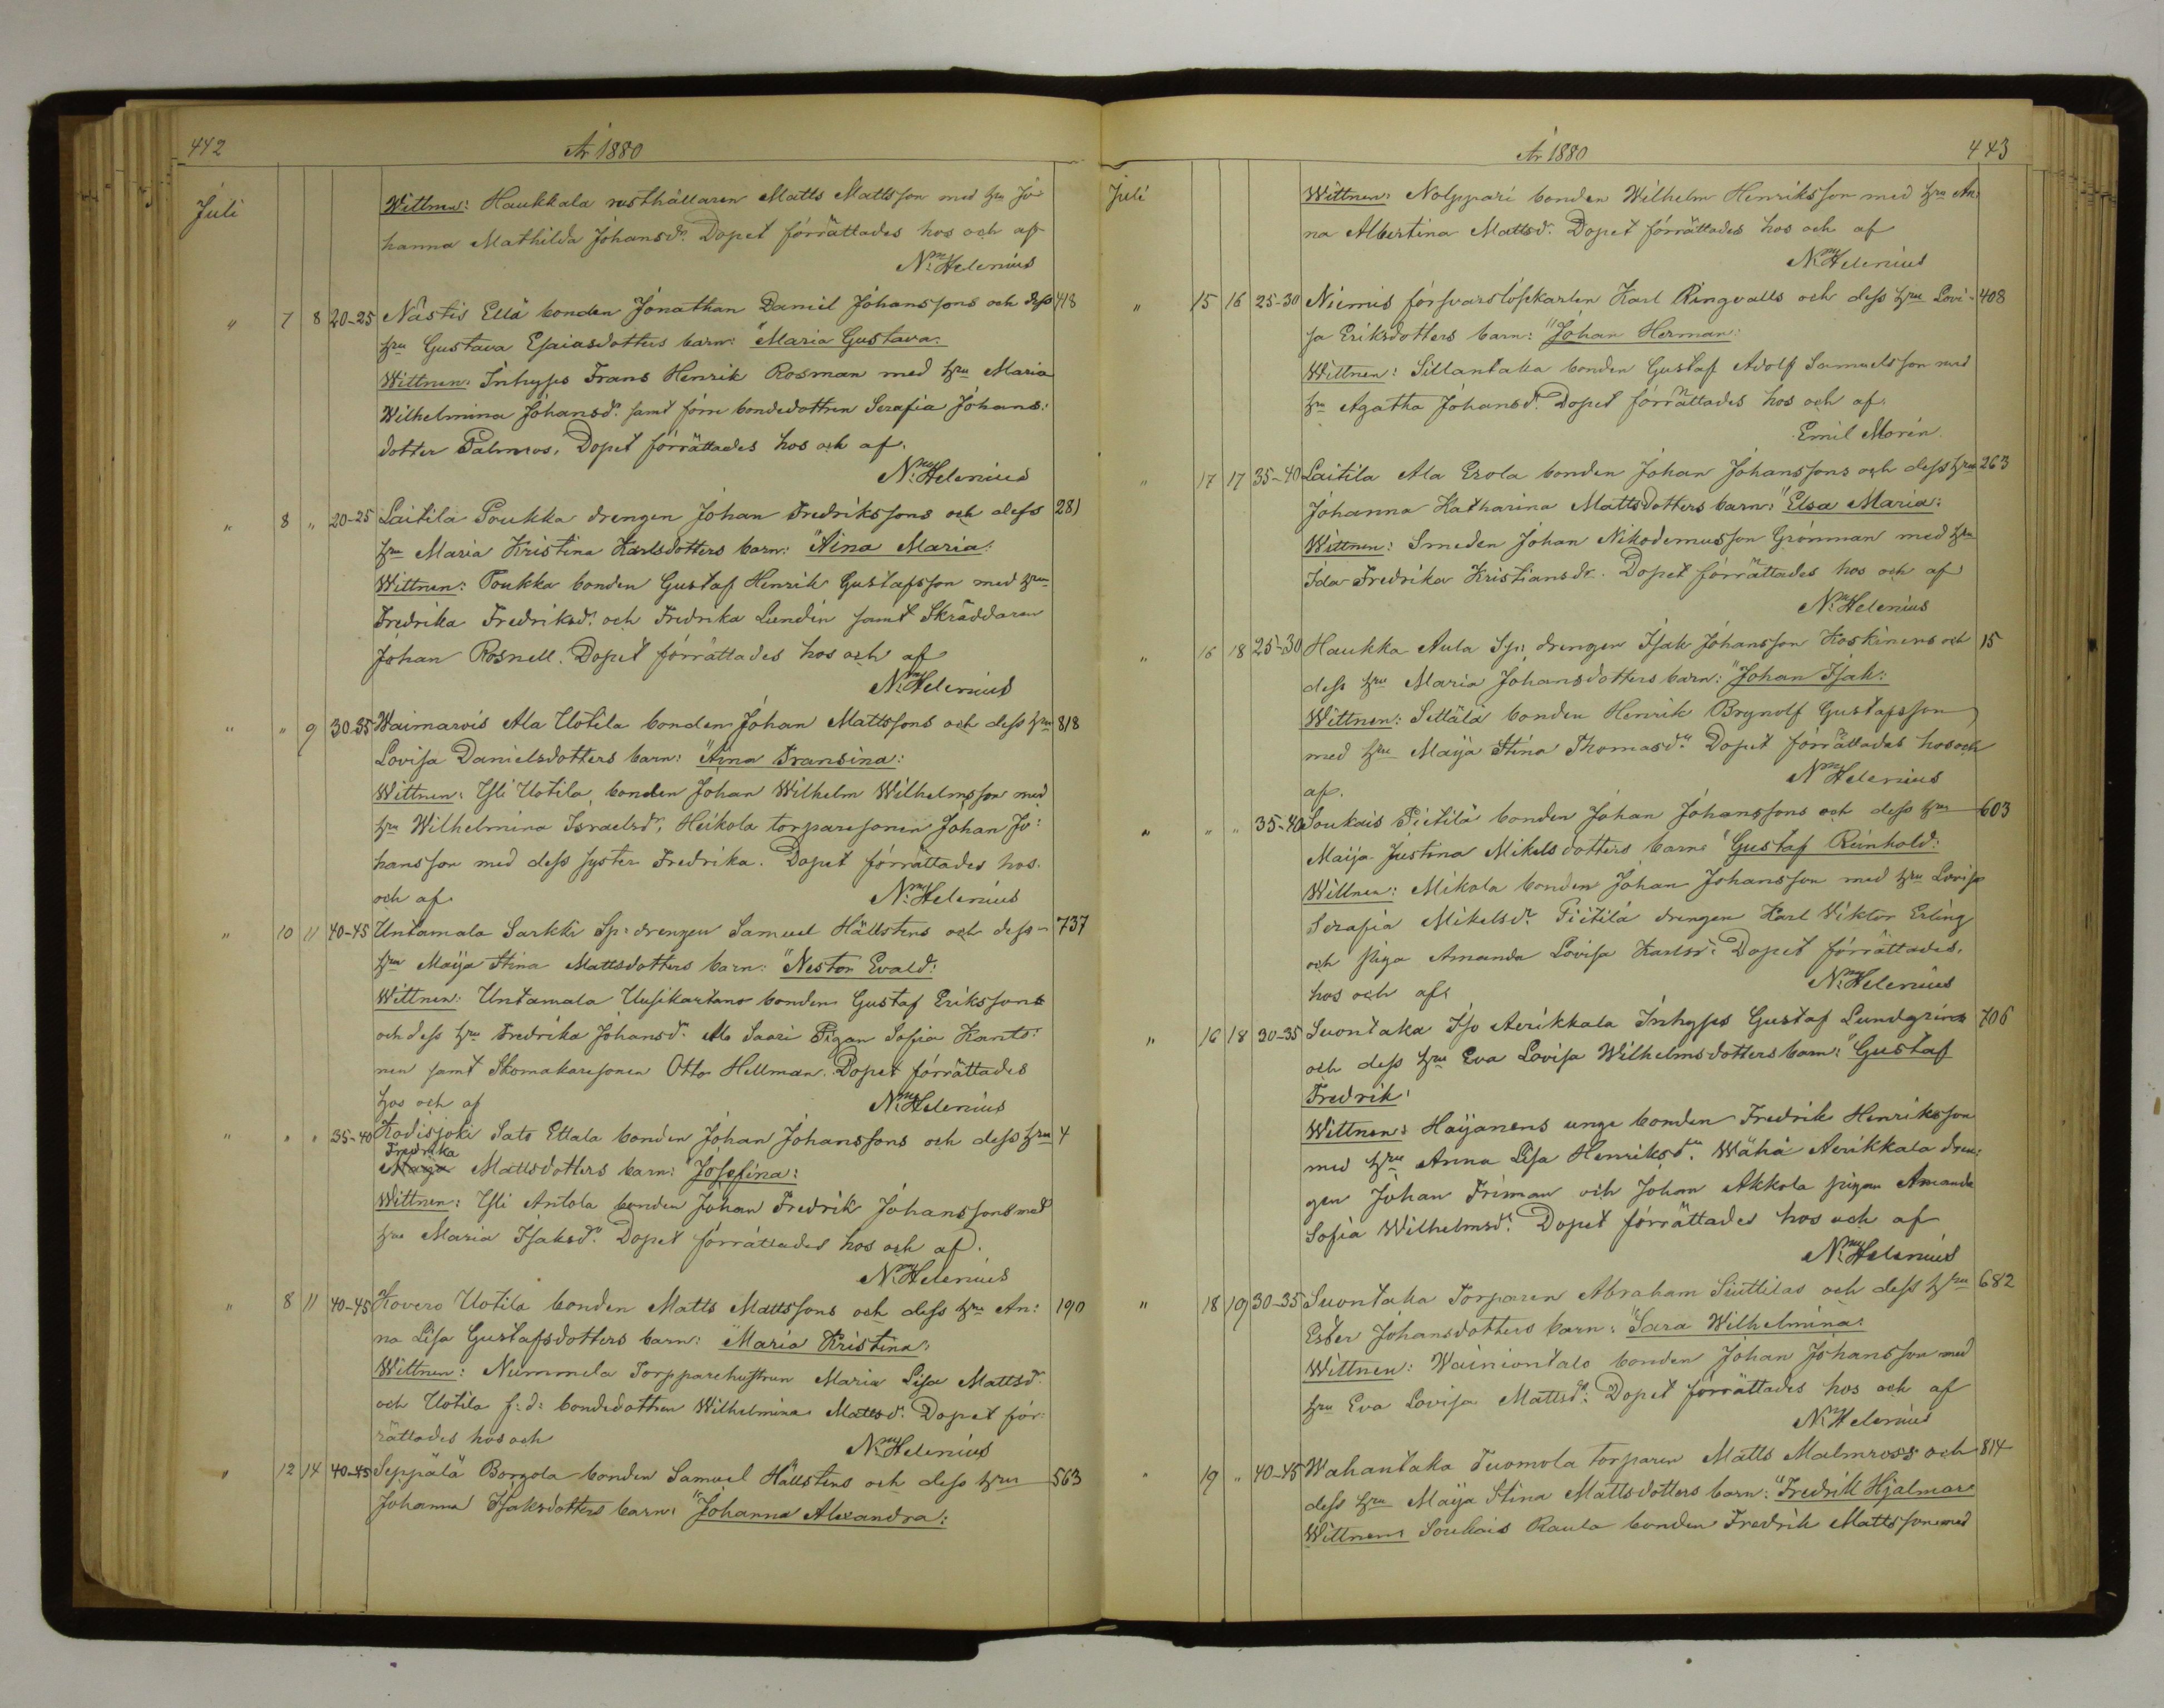 442
År 1880
Juli
Wittnen: Haukkala rusthållaren Matts Mattsson med hru Jo-
hanna Mathilda Johansdr. Dopet förrättades hos och af
N:ny Helenius
" 7 8 20-25 Nästis Ellä bonden Jonathan Daniel Johanssons och dess 418
hru Gustava Esaiasdotters barn: "Maria Gustava:
Wittnen: Inhyses Frans Henrik Rosman med hru Maria
Wilhelmina Johansdr. samt förre bondedottren Serafia Johans:
dotter Palmros. Dopet förrättades hos och af.
N:ny Helenius
" 8 " 20-25 Laitila Poukka drengen Johan Fredrikssons och dess 281
hru Maria Kristina Karlsdotters barn: "Aina Maria:
Wittnen: Poukka bonden Gustaf Henrik Gustafsson med hru
Fredrika Fredriksdr. och Fredrika Lundin samt Skräddaren
Johan Rosnell. Dopet förrättades hos och af
N:ny Helenius
" " 9 30-35 Waimarois Ala Uotila bonden Johan Mattssons och dess hru 818
Lovisa Danielsdotters barn: "Aina Fransina:
Wittnen: Yli Uotila bonden Johan Wilhelm Wilhelmsson med
hru Wilhelmina Israelsdr, Heikola torparesonen Johan Jo:
hansson med dess syster Fredrika. Dopet förrättades hos
och af. N:ny Helenius
" 10 11 40-45 Untamala Sarkki Sp: drengen Samuel Hällstens och dess 737
hru Maija Stina Mattsdotters barn: "Nestor Evald:
Wittnen: Untamala Uusikartano bonden Gustaf Eriksson
och dess hru Fredrika Johansdr. Ala Saari Pigan Sofia Kanto:
nen samt Skomakaresonen Otto Hellman. Dopet förrättades
hos och af N:ny Helenius
" " " 35-40 Kodisjoki Sato Ettala bonden Johan Johanssons och dess hru 4
Fredrika
Mattsdotters barn: "Josefina:
Wittnen: Yli Antola bonden Johan Fredrik Johanssons med
hru Maria Isaksdr. Dopet förrättades hos och af.
N:ny Helenius
" 8 11 40-45 Kovero Uotila bonden Matts Mattssons och dess hru An: 190
na Lisa Gustafsdotters barn: "Maria Kristina:
Wittnen: Nummela Torpparehustrun Maria Lisa Mattsdr.
och Uotila f:d: bondedottren Wilhelmina Mattsdr. Dopet för-
rättades hos och N:ny Helenius
" 12 14 40-45 Seppälä Borgola bonden Samuel Hällstens och dess hru 563
Johanna Isaksdotters barn: "Johanna Alexandra:
År 1880
443
Juli
Wittnen: Nolppari bonden Wilhelm Henriksson med hru An:
na Albertina Mattsdr. Dopet förrättades hos och af
N:ny Helenius
" 15 16 25-30 Niemis försvarslöskarlen Karl Ringvalls och dess hru Lovi- 408
sa Eriksdotters barn: "Johan Herman:
Wittnen: Sillantaka bonden Gustaf Adolf Samuelsson med
hru Agatha Johansdr. Dopet förrättades hos och af.
Emil Morén.
" 17 17 35-40 Laitila Ala Erola bonden Johan Johanssons och dess hru 263
Johanna Katharina Mattsdotters barn: "Elsa Maria:
Wittnen: Smeden Johan Nikodemusson Grönman med hru
Ida Fredrika Kristiansdr. Dopet förrättades hos och af
N:ny Helenius
" 16 18 25-30 Haukka Aula Sp: drengen Isak Johansson Koskinens och 15
dess hru Maria Johansdotters barn: "Johan Isak:
Wittnen: Settälä bonden Henrik Brynolf Gustafsson
med hru Maija Stina Thomasdr. Dopet förrättades hos och
af. N:ny Helenius
" " " 35-40 Soukais Pietilä bonden Johan Johanssons och dess hru 603
Maija Justina Mikelsdotters barn: "Gustaf Reinhold:
Wittnen: Mikola bonden Johan Johansson med hru Lovisa
Serafia Mikelsdr. Pietilä drengen Karl Viktor Erling
och piga Amanda Lovisa Karlsdr. Dopet förrättades.
hos och af. N:ny Helenius
" 16 18 30-35 Suontaka Iso Aerikkala Inhyses Gustaf Lundgréns 706
och dess hru Eva Lovisa Wilhelmsdotters barn: "Gustaf
Fredrik:
Wittnen: Haijanens unge bonden Fredrik Henriksson
med hru Anna Lisa Henriksdr. Wähä Aerikkala dren:
gen Johan Friman och Johan Akkola pigan Amanda
Sofia Wilhelmsdr. Dopet förrättades hos och af
N:ny Helenius
" 18 19 30-35 Suontaka Torparen Abraham Siuttilas och dess hru 682
Ester Johansdotters barn: "Sara Wilhelmina:
Wittnen: Wainiontalo bonden Johan Johansson med
hru Eva Lovisa Mattsdr. Dopet förrättades hos och af
N:ny Helenius
" 19 " 40-45 Wahantaka Tuomola torparen Matts Malmross och 814
dess hru Maija Stina Mattsdotters barn: "Fredrik Hjalmar:
Wittnen: Soukais Raula bonden Fredrik Mattsson med